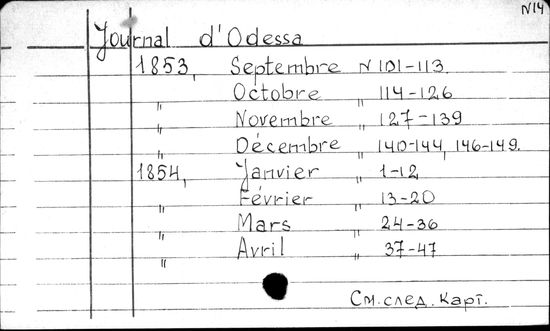 N14
Journal d'Odessa
1853, Septembre N 101-113.
" Octobre " 114-126
" Novembre " 127-139
" Décembre " 140-144, 146-149.
1854, Janvier " 1-12
" Février " 13-20
" Mars " 24-36
" Avril " 37-47
См. след. карт.